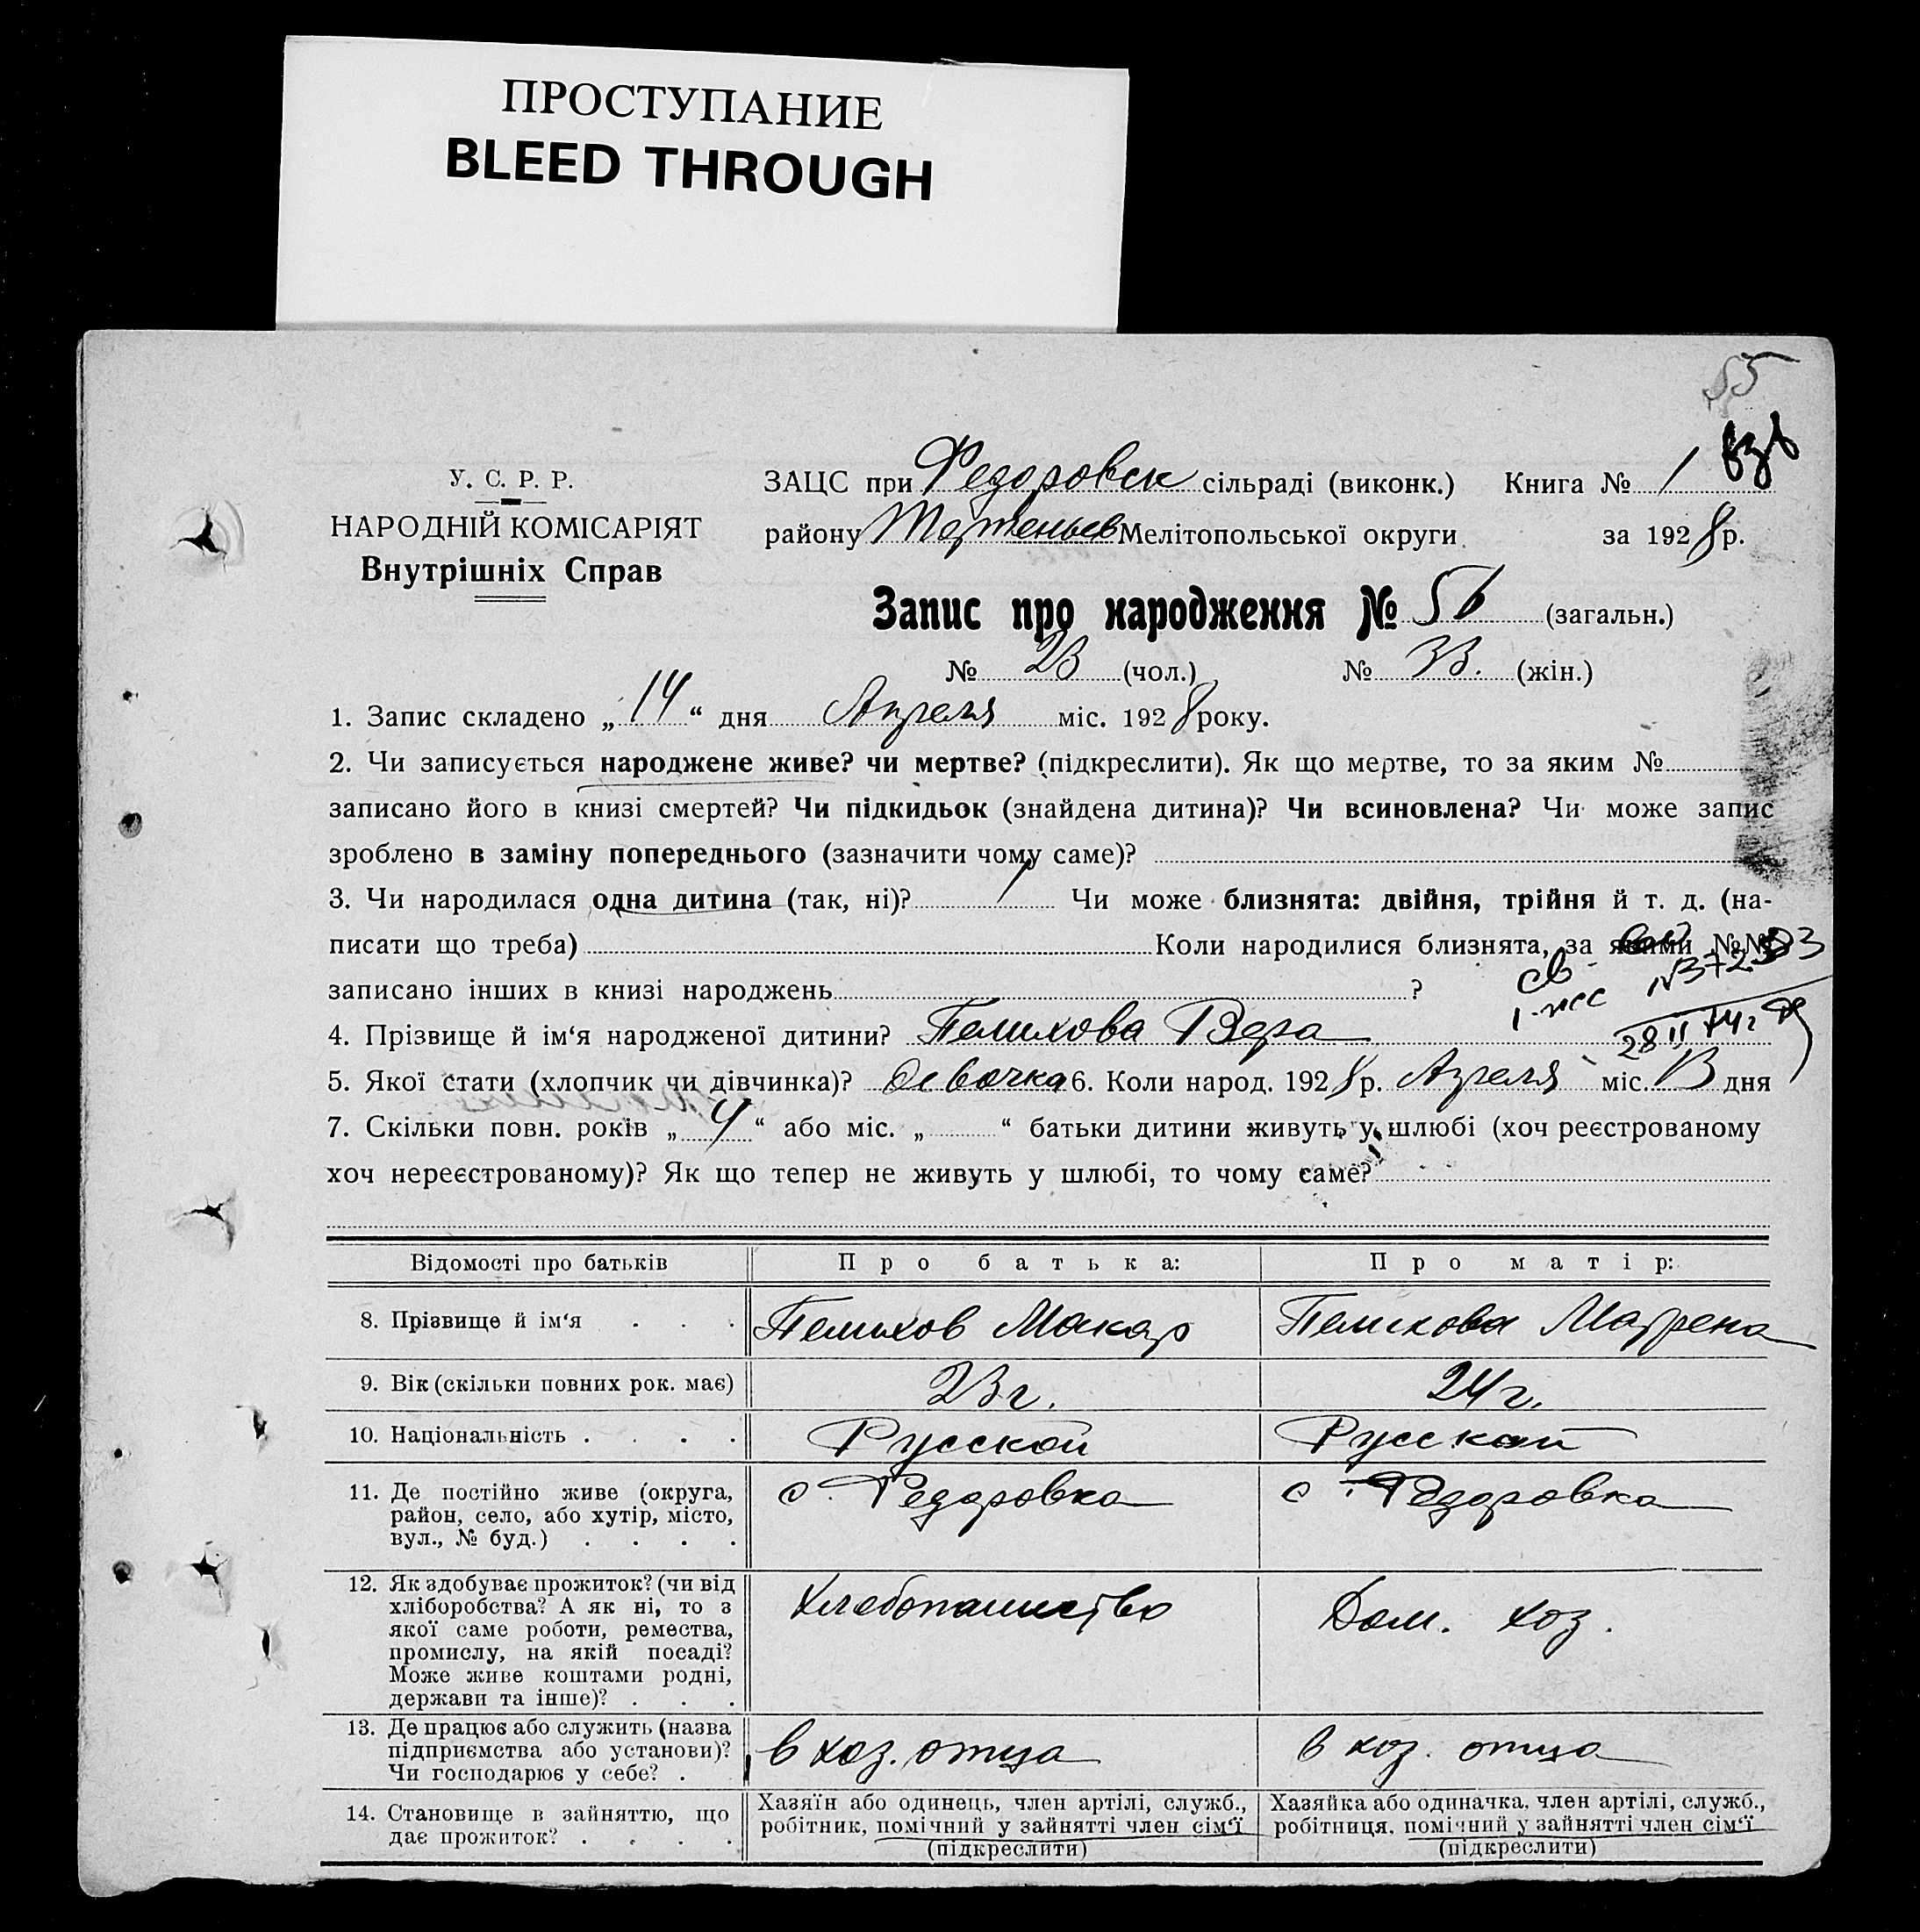 ПРОСТУПАНИЕ
BLEED THROUGH
55
У. С. Р. Р.
НАРОДНІЙ КОМІСАРІЯТ
Внутрішніх Справ
ЗАЦС при Федоровск сільраді (виконк.) Книга № 1
району Мелітопольської округи за 1928 р.
Запис про народження № 56 (загальн.)
№ 23 (чол.) № 33. (жін.)
1. Запис складено „ 14 “ дня Апреля міс. 1928 року.
2. Чи записується народжене живе? чи мертве? (підкреслити). Як що мертве, то за яким №
записано його в книзі смертей? Чи підкидьок (знайдена дитина)? Чи всиновлена? Чи може запис
зроблено в заміну попереднього (зазначити чому саме)?
3. Чи народилася одна дитина (так, ні)? 1 Чи може близнята: двійня, трійня й т. д. (на-
писати що треба) Коли народилися близнята, за якими №№
записано інших в книзі народжень ?
4. Прізвище й ім‘я народженої дитини? Пелихова Вера
28 II 74г
5. Якої стати (хлопчик чи дівчинка)? Девочка 6. Коли народ. 1928 р. Апреля міс. 13 дня
7. Скільки повн. років „ 4 “ або міс. „ “ батьки дитини живуть у шлюбі (хоч реєстрованому
хоч нереєстрованому)? Як що тепер не живуть у шлюбі, то чому саме?
Відомості про батьків Про батька: Про матір:
8. Прізвище й ім‘я . . . Пелихов Макар Пелихова Марфена
9. Вік (скільки повних рок. має) 23 г. 24 г.
10. Національність . . . . Русской Русской
11. Де постійно живе (округа,
район, село, або хутір, місто,
вул., № буд.) . . . .
с. Федоровка с. Федоровка
12. Як здобуває прожиток? (чи від
хліборобства? А як ні, то з
якої саме роботи, ремества,
промислу, на якій посаді?
Може живе коштами родні,
держави та інше)? . . .
Хлебопашество Дом. хоз.
13. Де працює або служить (назва
підприємства або установи)?
Чи господарює у себе? .
в хоз. отца в хоз. отца
14. Становище в зайняттю, що
дає прожиток? . . . .
Хазяїн або одинець, член артілі, служб.,
робітник, помічний у зайнятті член сім‘ї
(підкреслити)
Хазяйка або одиначка, член артілі, служб.,
робітниця, помічний у зайнятті член сім‘ї
(підкреслити)